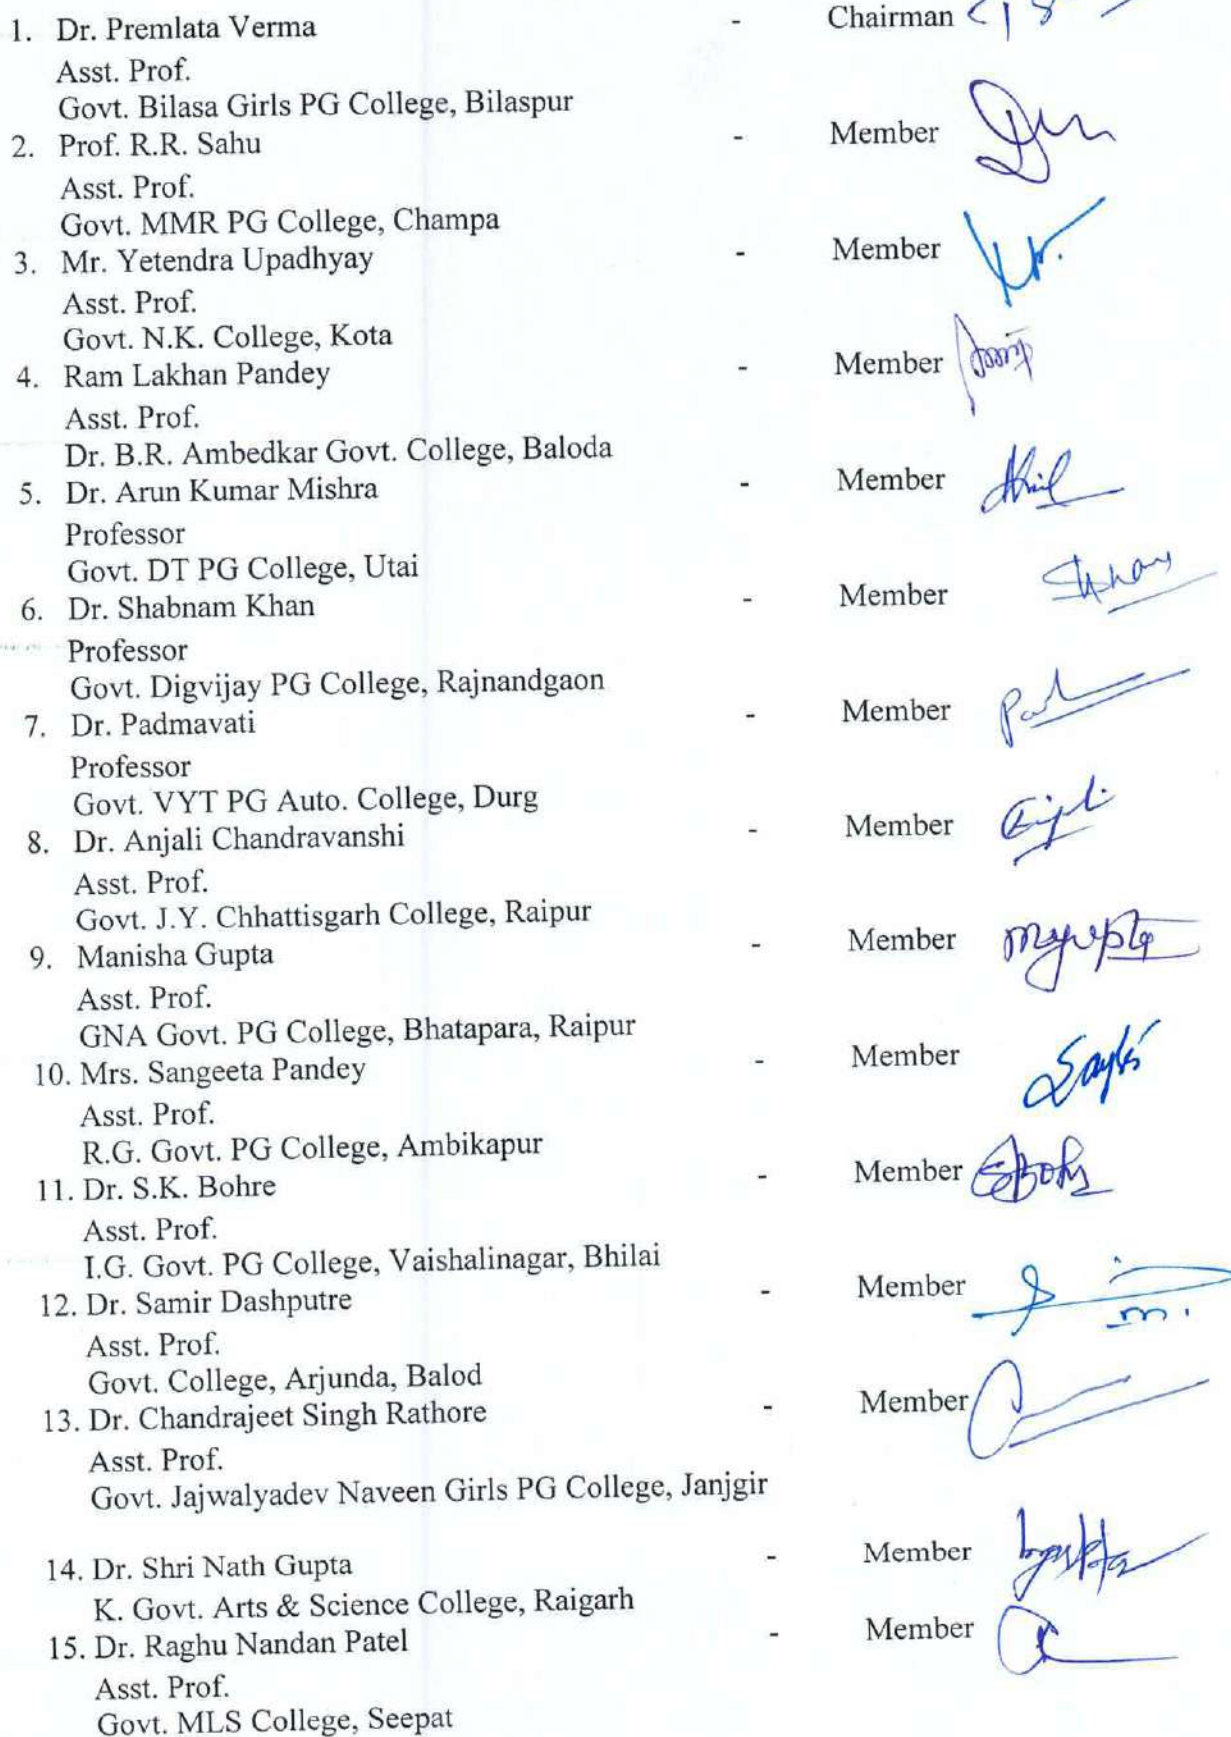 1. Dr. Premlata Verma - Chairman
Asst. Prof.
Govt. Bilasa Girls PG College, Bilaspur
2. Prof. R.R. Sahu - Member
Asst. Prof.
Govt. MMR PG College, Champa
3. Mr. Yetendra Upadhyay - Member
Asst. Prof.
Govt. N.K. College, Kota
4. Ram Lakhan Pandey - Member
Asst. Prof.
Dr. B.R. Ambedkar Govt. College, Baloda
5. Dr. Arun Kumar Mishra - Member
Professor
Govt. DT PG College, Utai
6. Dr. Shabnam Khan - Member
Professor
Govt. Digvijay PG College, Rajnandgaon
7. Dr. Padmavati - Member
Professor
Govt. VYT PG Auto. College, Durg
8. Dr. Anjali Chandravanshi - Member
Asst. Prof.
Govt. J.Y. Chhattisgarh College, Raipur
9. Manisha Gupta - Member mgupta
Asst. Prof.
GNA Govt. PG College, Bhatapara, Raipur
10. Mrs. Sangeeta Pandey - Member
Asst. Prof.
R.G. Govt. PG College, Ambikapur
11. Dr. S.K. Bohre - Member
Asst. Prof.
I.G. Govt. PG College, Vaishalinagar, Bhilai
12. Dr. Samir Dashputre - Member
Asst. Prof.
Govt. College, Arjunda, Balod
13. Dr. Chandrajeet Singh Rathore - Member
Asst. Prof.
Govt. Jajwalyadev Naveen Girls PG College, Janjgir
14. Dr. Shri Nath Gupta - Member
K. Govt. Arts & Science College, Raigarh
15. Dr. Raghu Nandan Patel - Member
Asst. Prof.
Govt. MLS College, Seepat